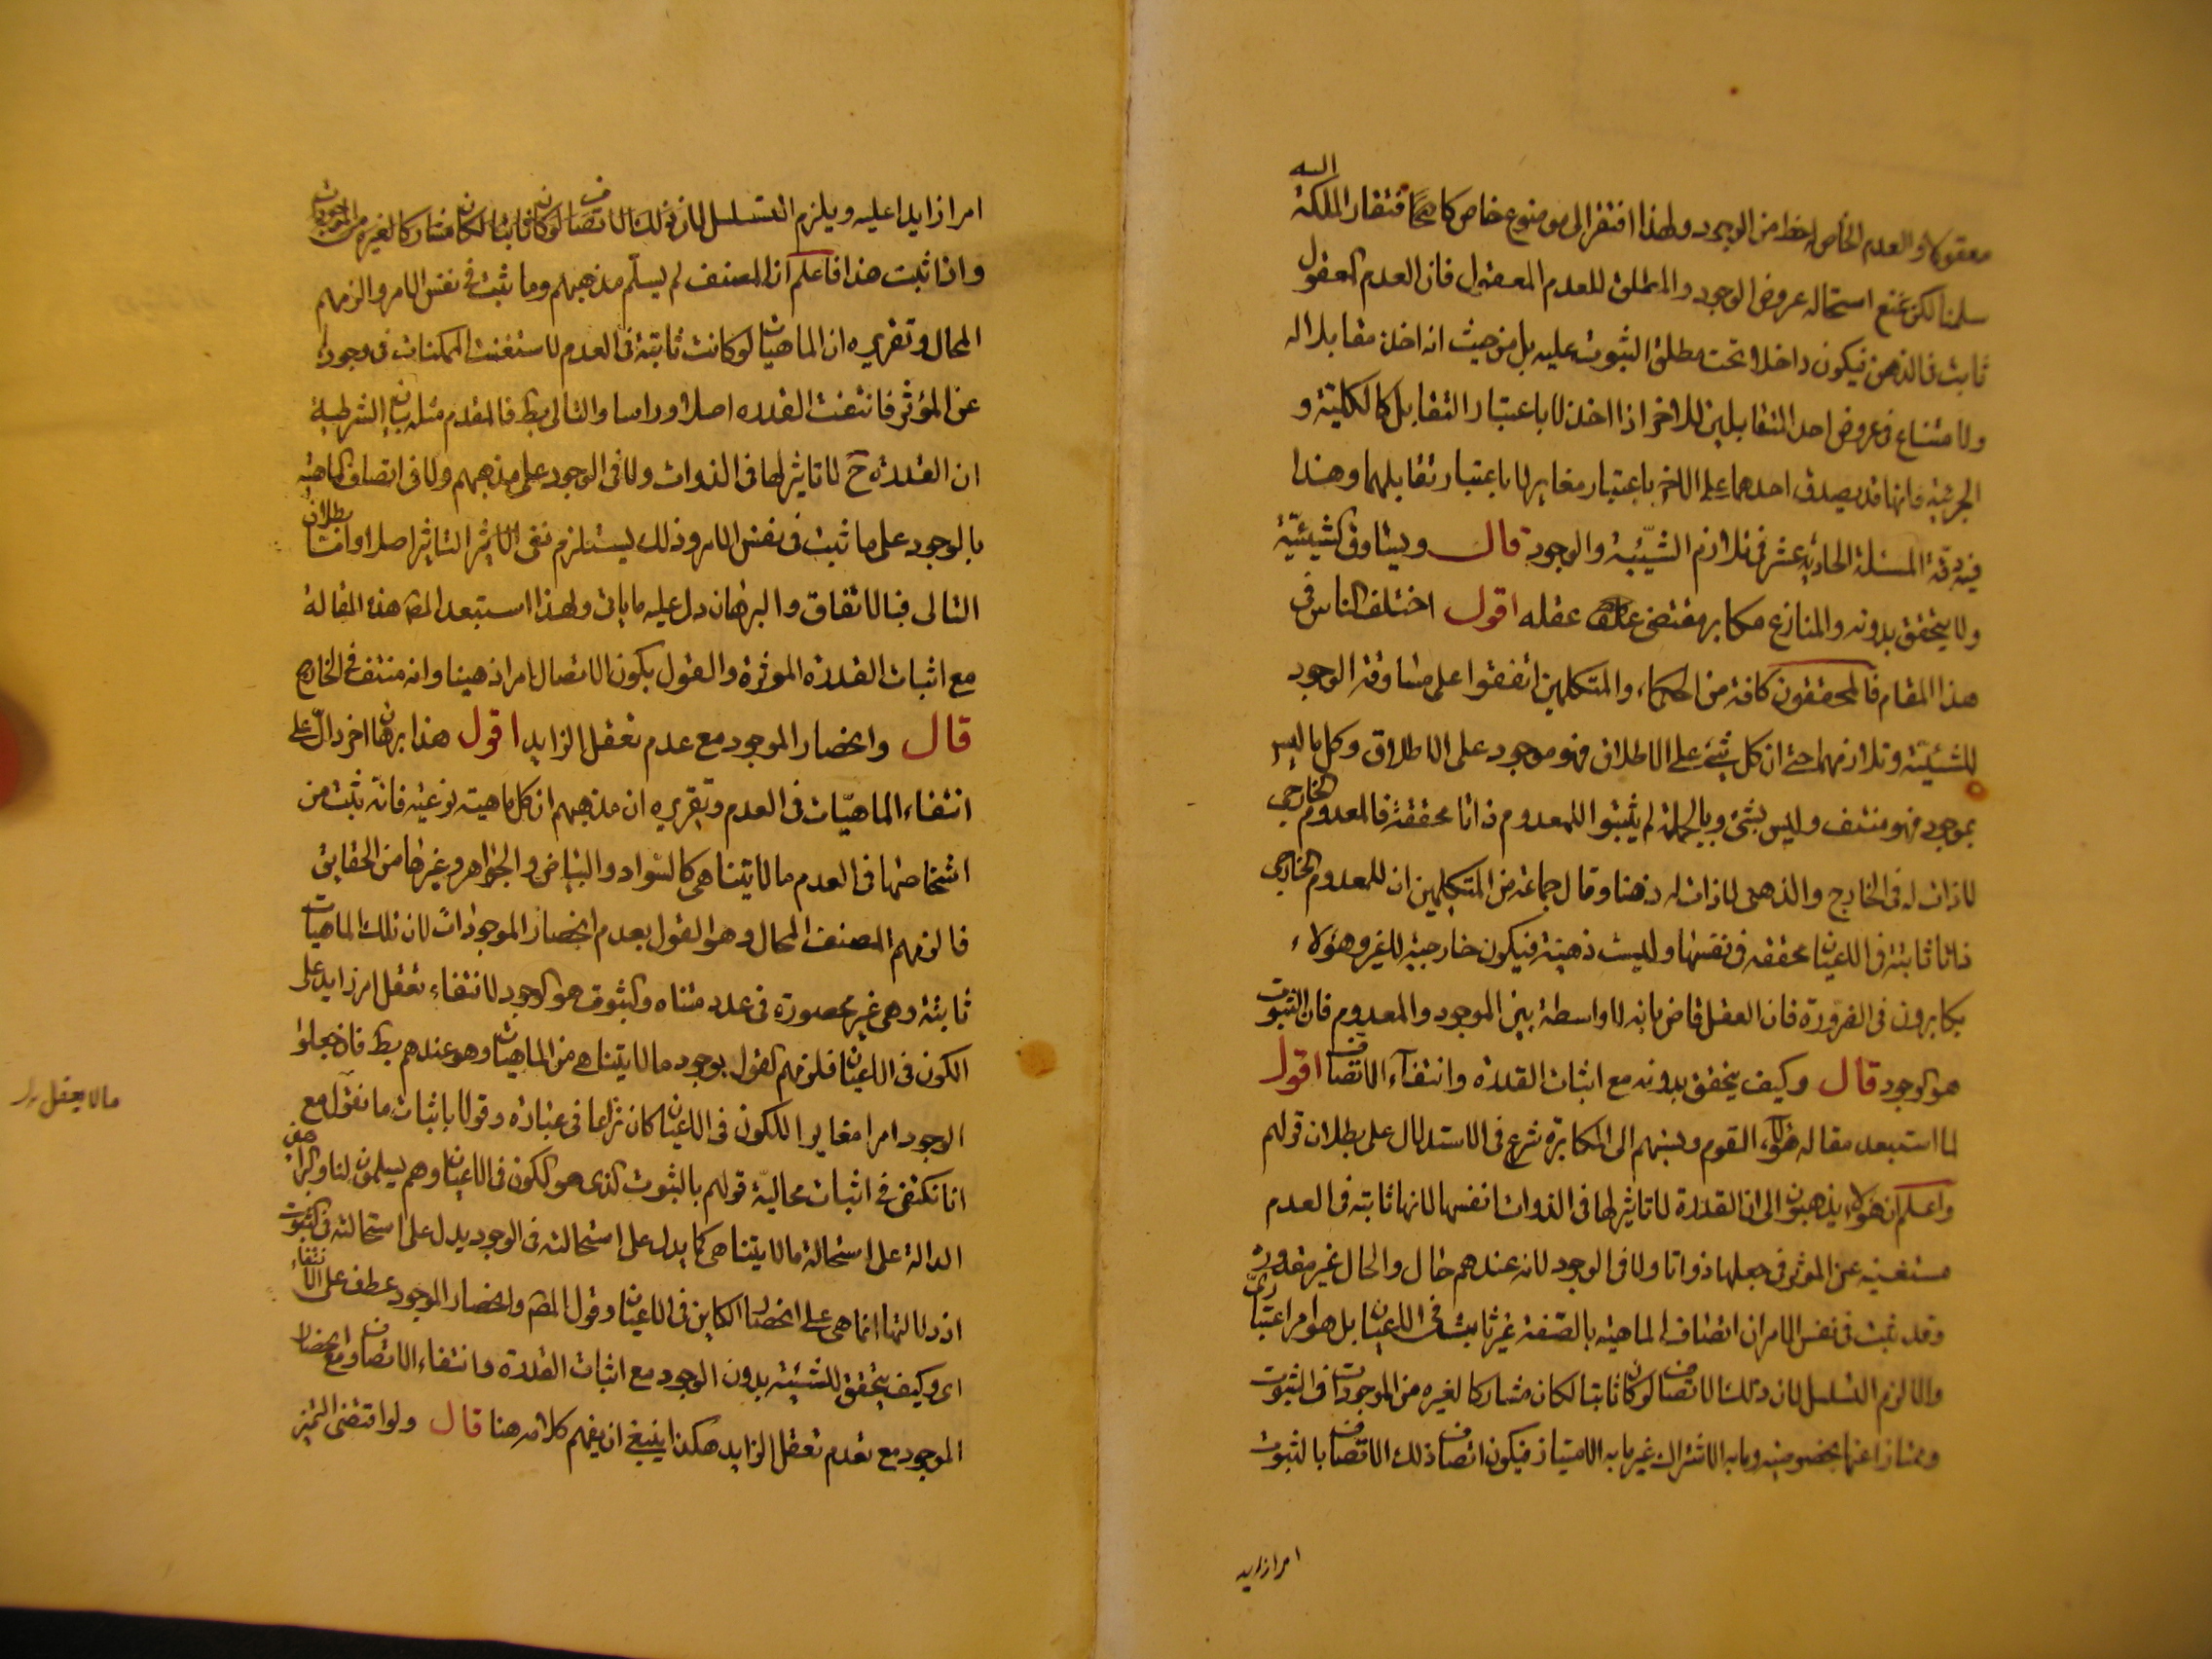 معقولا والعدم الخاص له حظ من الوجود ولهذا افتقر الى موضوع خاص كافتقار الملكة اليه
سلمنا لكن نمنع استحالة عروض الوجود المطلق للعدم المعقول فان العدم المعقول
ثابت فى الذهن فيكون داخلا تحت مطلق الثبوت عليه بل من حيث انه اخذ مقابلا له
ولا امتناع فى عروض احد المتقابلين للاخر اذا اخذ لا باعتبار التقابل كالكلية و
الجزئية فانهما قد يصدق احدهما على الاخر باعتبار مغاير لا باعتبار تقابلهما وهذا
فيه دقة المسئلة الحادية عشر فى تلازم الشيئية والوجود قال ويساوق الشيئية
ولا يتحقق بدونه والمنازع مكابر مقتضى عقله اقول اختلف الناس فى
هذا المقام فالمحققون كافة من الحكماء والمتكلمين اتفقوا على مساوقة الوجود
للشيئية وتلازمهما حتى ان كل شئ على الاطلاق فهو موجود على الاطلاق وكل ما ليس
بموجود فهو منتف وليس بشئ وبالجملة لم يثبتوا للمعدوم ذاتا محققة فالمعدوم الخارجى
لا ذات له فى الخارج والذهنى لا ذات له ذهنا وقال جماعة من المتكلمين ان للمعدوم الخارجى
ذاتا ثابتة فى الاعيان محققة فى نفسها وليست ذهنية فيكون خارجية لا غير وهؤلاء
يكابرون فى الضرورة فان العقل قاض بانه لا واسطة بين الموجود والمعدوم فان الثبوت
هو الوجود قال وكيف يتحقق بدونه مع اثبات القدرة وانتفاء الاتصاف اقول
لما استبعد مقالة هؤلاء القوم ونسبهم الى المكابرة شرع فى الاستدلال على بطلان قولهم
واعلم ان هؤلاء يذهبون الى ان القدرة لا تاثير لها فى الذوات انفسها لانها ثابتة فى العدم
مستغنية عن المؤثر فى جعلها ذواتا ولا فى الوجود لانه عندهم حال والحال غير مقدورة
وقد ثبت فى نفس الامر ان اتصاف الماهية بالصفة غير ثابت فى الاعيان بل هو امر اعتبارى
والا لزم التسلسل لان ذلك الاتصاف لو كان ثابتا لكان مشاركا لغيره من الموجودات فى الثبوت
وممتازا عنها بخصوصيته وما به الاشتراك غير ما به الامتياز فيكون اتصاف ذلك الاتصاف بالثبوت
امرا زايد
امرا زايدا عليه ويلزم التسلسل لان ذلك الاتصاف لو كان ثابتا لكان مشاركا لغيره من الموجودات
واذا ثبت هذا فاعلم ان المصنف لم يسلم مذهبهم وما ثبت فى نفس الامر والزمهم
المحال وتقريره ان الماهيات لو كانت ثابتة فى العدم لاستغنت الممكنات فى وجودها
عن المؤثر فانتفت القدرة اصلا وراسا والتالى بط فالمقدم مثله بيان الشرطية
ان القدرة ح لا تاثير لها فى الذوات ولا فى الوجود على مذهبهم ولا فى اتصاف الماهية
بالوجود على ما ثبت فى نفس الامر وذلك يستلزم نفى التاثير اصلا واما بطلان
التالى فبالاتفاق والبرهان دل عليه ما ياتى ولهذا استبعد المص هذه المقالة
مع اثبات القدرة الموثرة والقول بكون الاتصال امرا ذهنيا وانه منتف فى الخارج
قال وانحصار الموجود مع عدم تعقل الزايد اقول هذا برهان اخر دال على
انتفاء الماهيات فى العدم وتقريره ان مذهبهم ان كل ماهية نوعية فانه يثبت من
اشخاصها فى العدم ما لا يتناهى كالسواد والبياض والجواهر وغيرها من الحقايق
فالزمهم المصنف المحال وهو القول بعدم انحصار الموجودات لان تلك الماهيات
ثابتة وهى غير محصورة فى عدد متناه والثبوت هو الوجود لانتفاء تعقل امر زايد على
الكون فى الاعيان فلزمهم القول بوجود ما لا يتناهى من الماهيات وهو عندهم بط فان جعلوا
الوجود امرا مغايرا للكون فى الاعيان كان نزاعا فى عبارة وقولا باثبات ما نقول مع
ما لا يعقل
انا نكتفى فى اثبات محالية قولهم بالثبوت الذى هو الكون فى الاعيان وهم يسلمون لنا والبراهين
الدالة على استحالة ما لا يتناهى كما يدل على استحالته فى الوجود يدل على استحالته فى الثبوت
اذ دلالتها انما هى على انحصار الكاين فى الاعيان وقول المص وانحصار الموجود عطف على الانتفاء
اى وكيف يتحقق للشيئية بدون الوجود مع اثبات القدرة وانتفاء الاتصاف ومع انحصار
الموجود مع عدم تعقل الزايد هكذا ينبغى ان يفهم كلامه هنا قال ولو اقتضى التميز